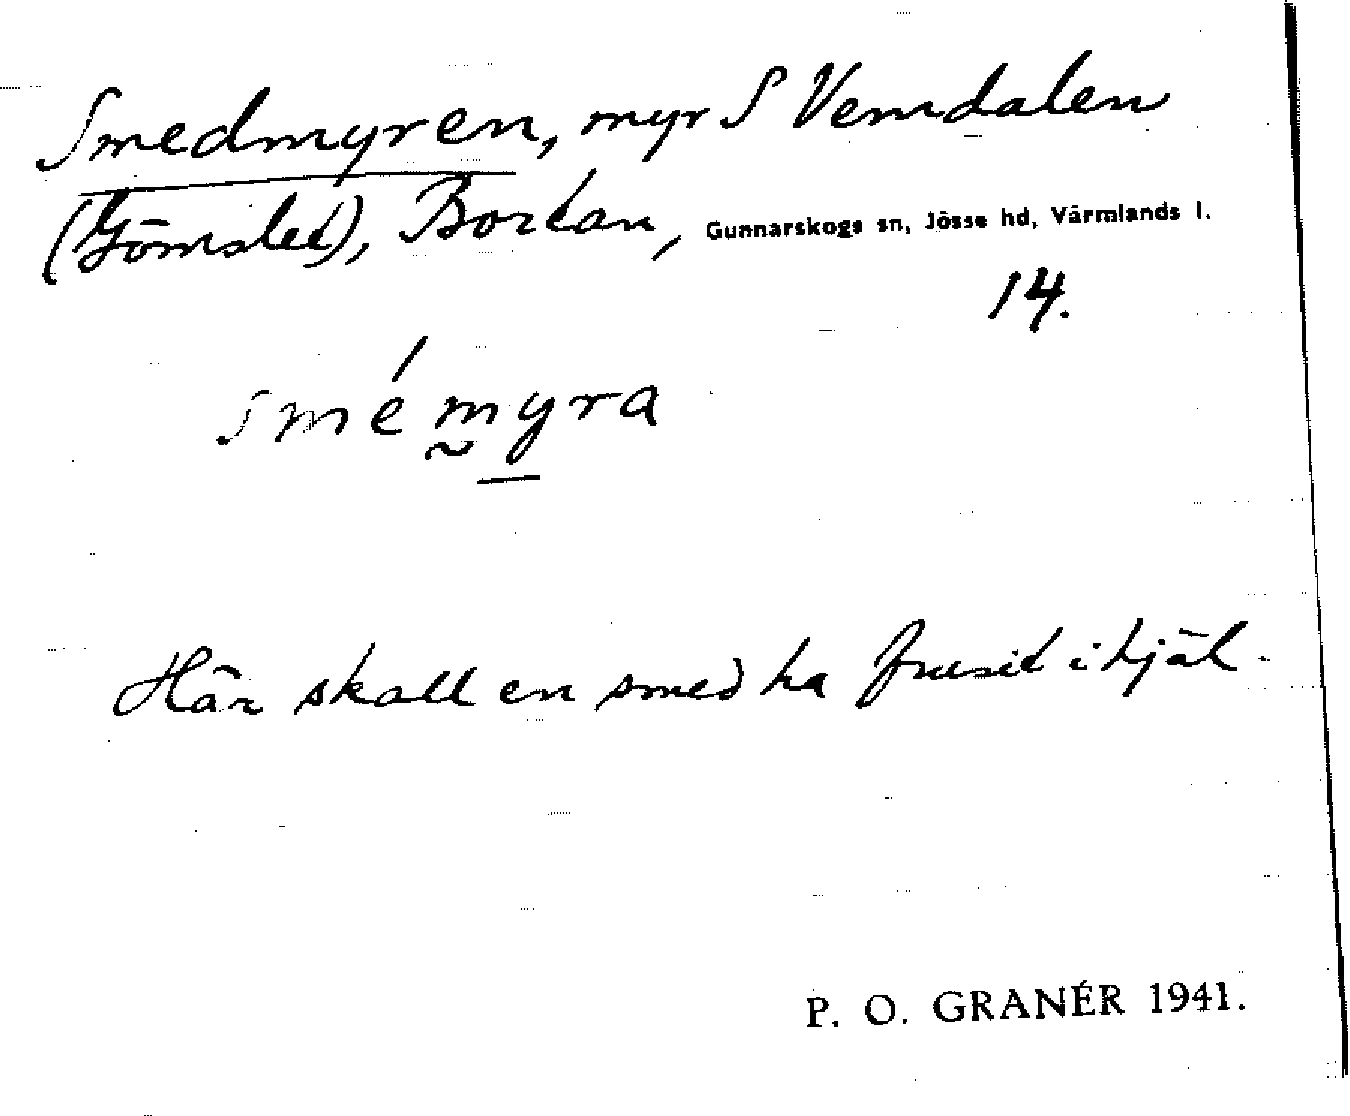 Smedmyren, myr S Vemdalen
(Gömslet), Bortan, Gunnarskogs sn, Jösse hd, Värmlands l.
14.
smémyra
Här skall en smed ha frusit ihjäl.
P. O. GRANÉR 1941.